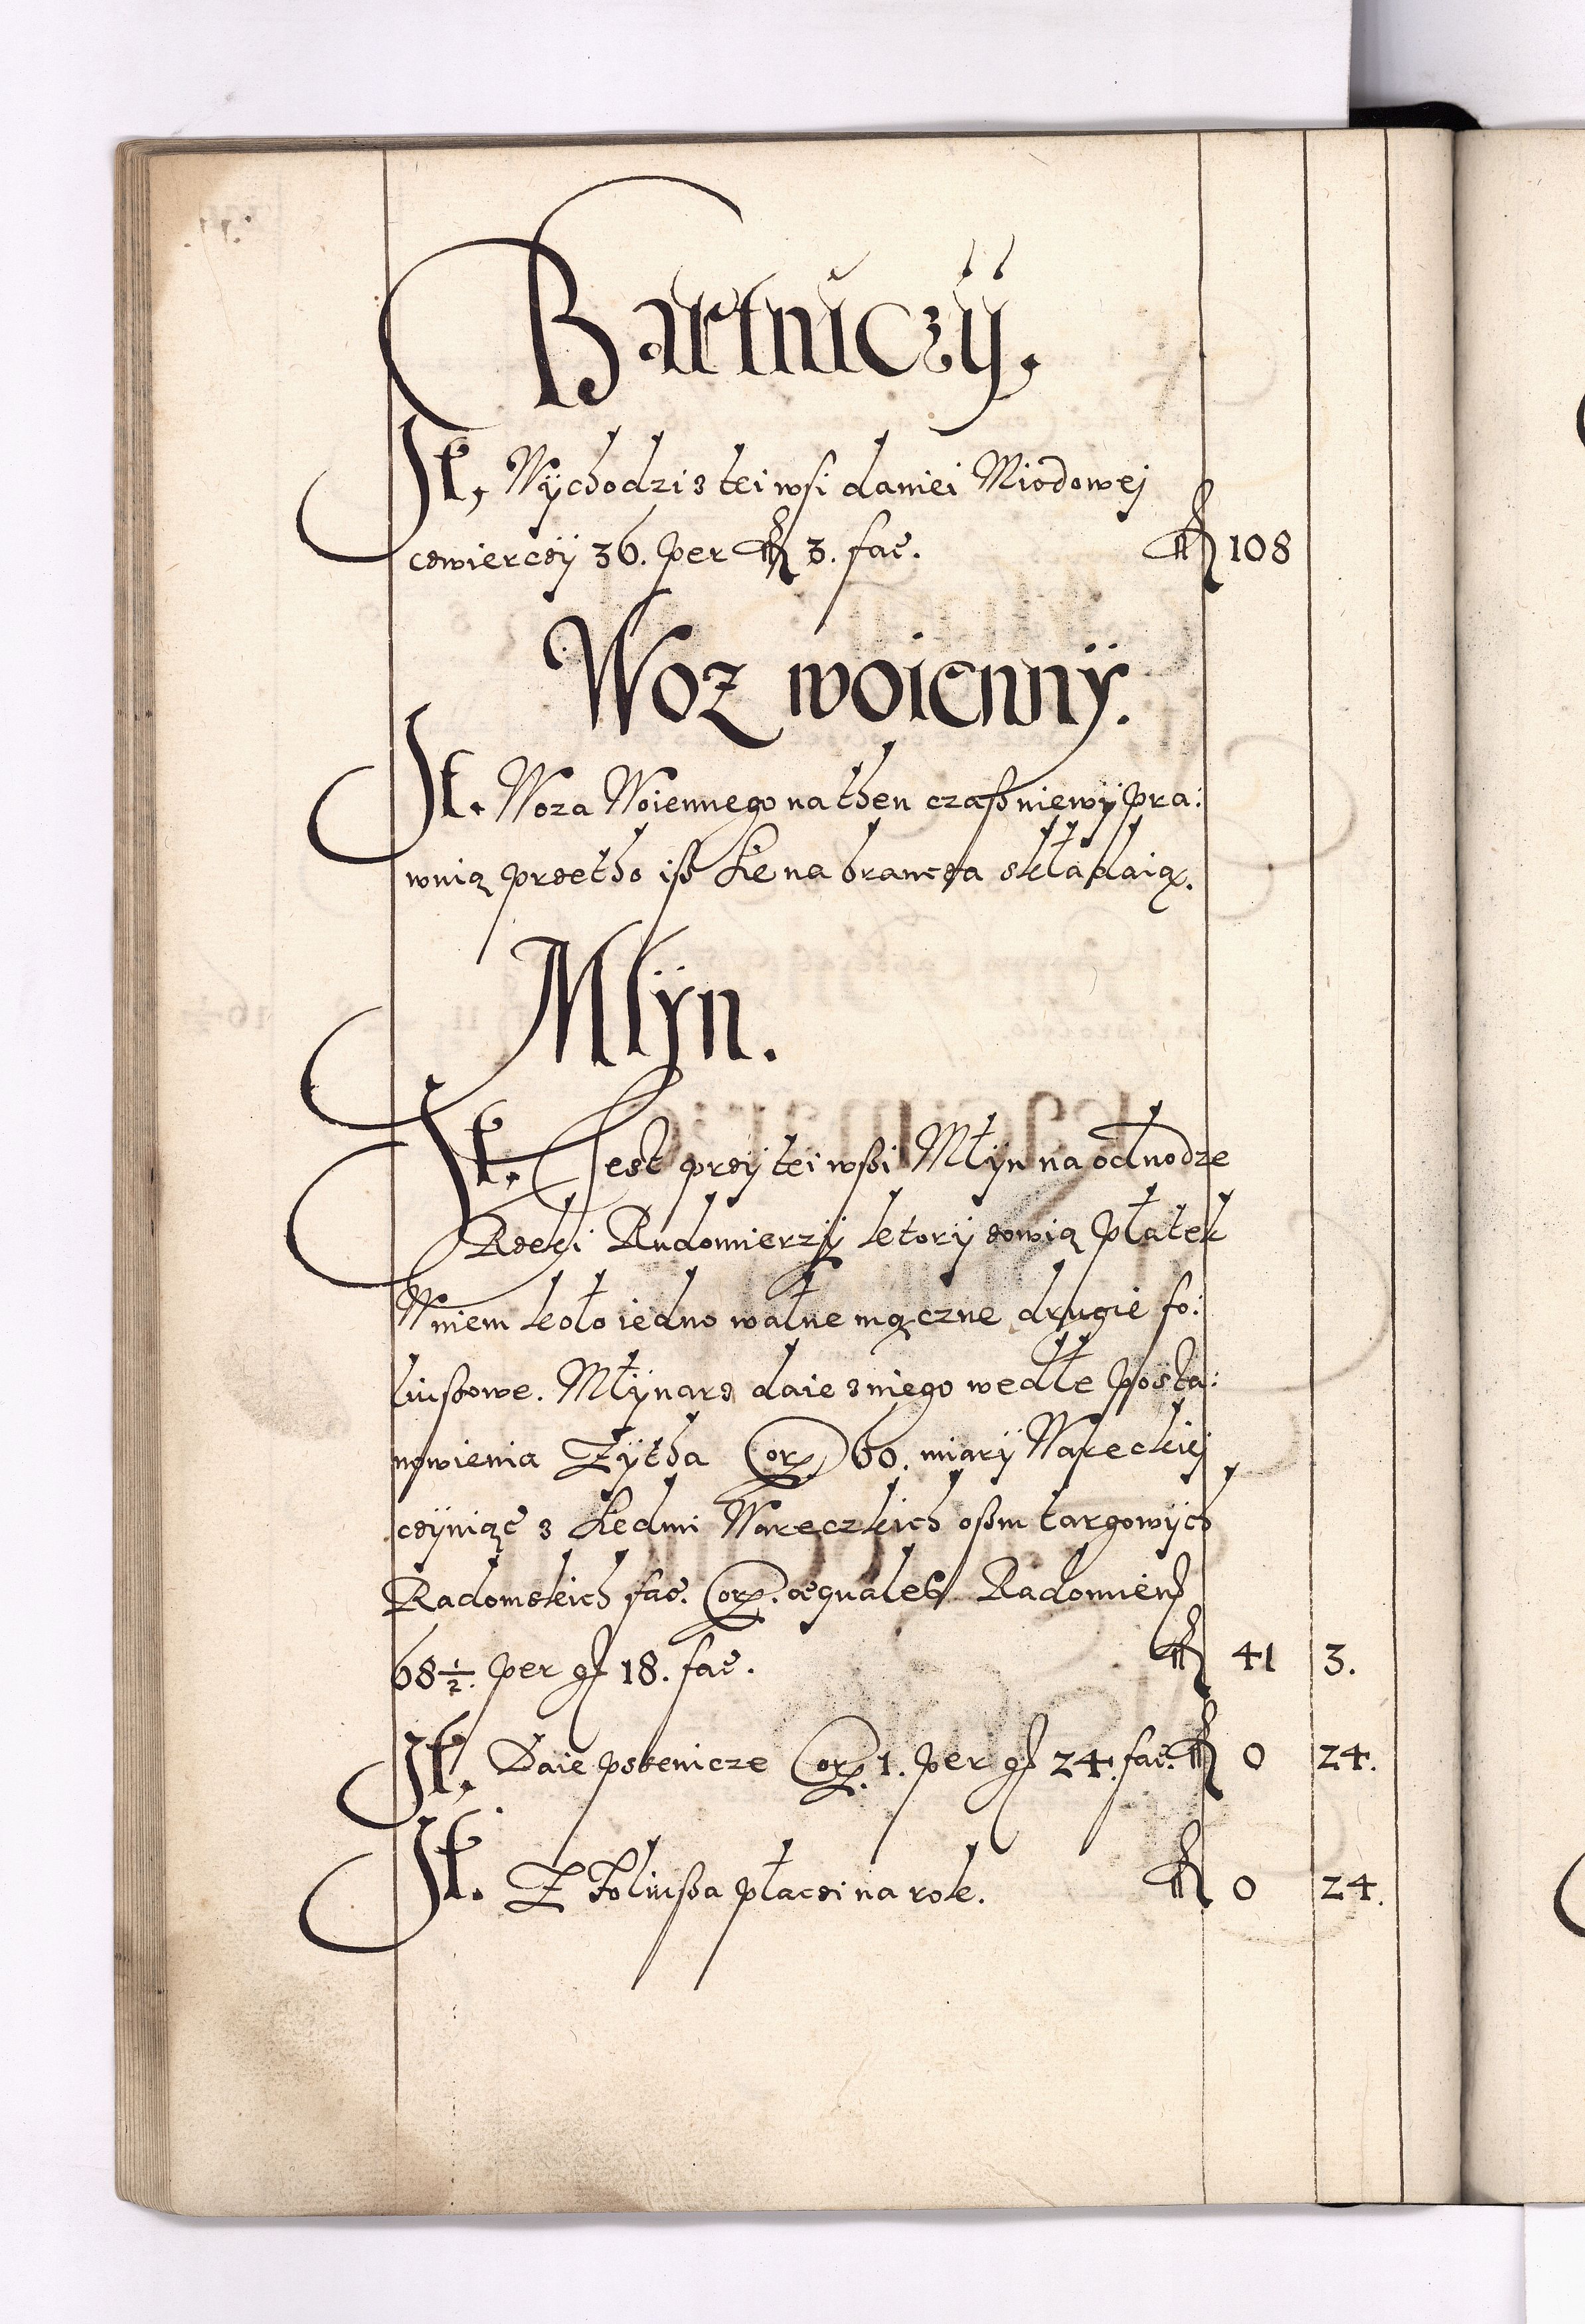 Bartniczÿ.
It, Wÿchodzi z tei wsi daniei Miodowej
czwierczÿ 36. per fl 3. fac. fl 108
Woz woiennÿ.
It. Woza Woiennego na then czaß nie wÿpra:
wuią przetho iß sie na brancza składaią.
Mlÿn.
It. Jest przÿ tei wßi Młÿn na odnodze
Rzeki Radomierzÿ ktorÿ zowią płatek
W niem koło iedno walne mączne drugie fo:
lußowe. Młÿnarz daie z niego wedłe posta:
nowienia Zÿtha Corz 60. miarÿ Wareckiej
czÿniąc z siedmi Wareczkich oßm targowÿch
Radomskich fac. Corz. æquales Radomien
68 1/2. per gr 18. fac. fl 41 3.
It. Daie pszenicze Corz. 1. per gr 24. fac. fl 0 24.
It. Z Folußa płaczi na rok. fl 0 24.